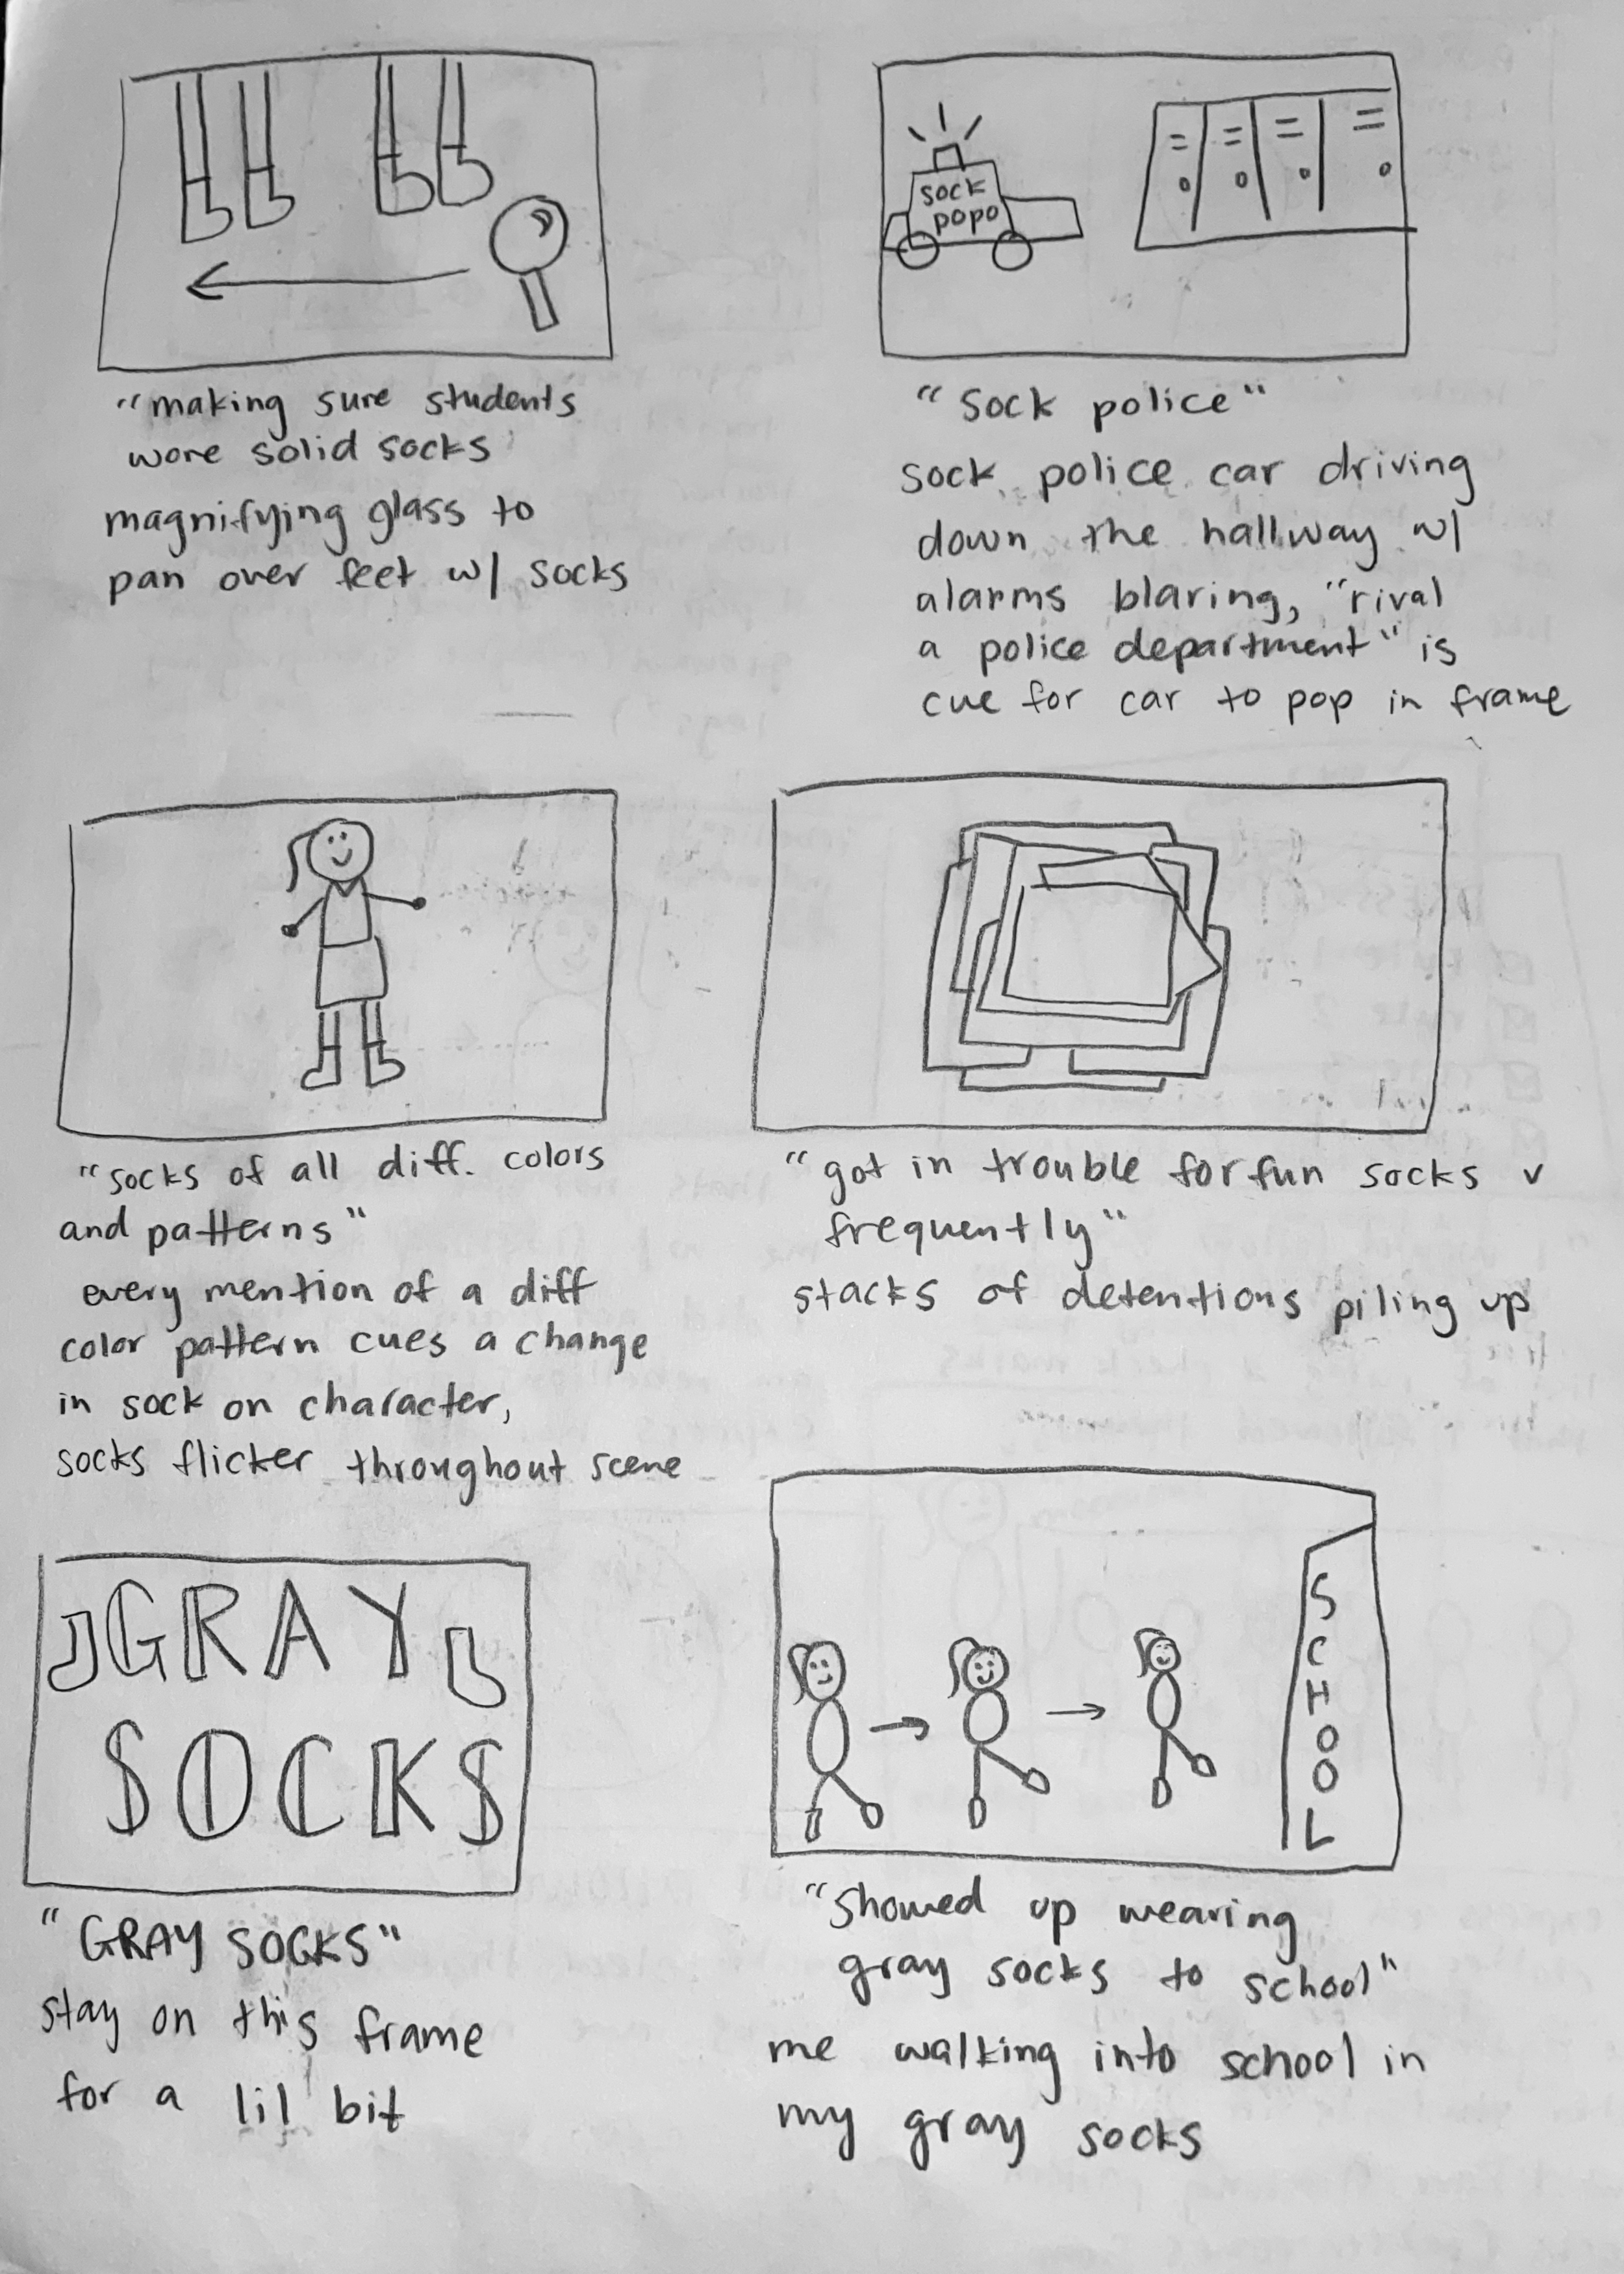 "making sure students
wore solid socks
magnifying glass to
pan over feet w/ socks
sock
popo
"sock police"
sock police car driving
down the hallway w/
alarms blaring, "rival
a police department" is
cue for car to pop in frame
"socks of all diff. colors
and patterns"
every mention of a diff
color pattern cues a change
in sock on character,
socks flicker throughout scene
"got in trouble for fun socks v
frequently"
stacks of detentions piling up
GRAY
SOCKS
"GRAY SOCKS"
stay on this frame
for a lil bit
SCHOOL
"Showed up wearing
gray socks to school"
me walking into school in
my gray socks